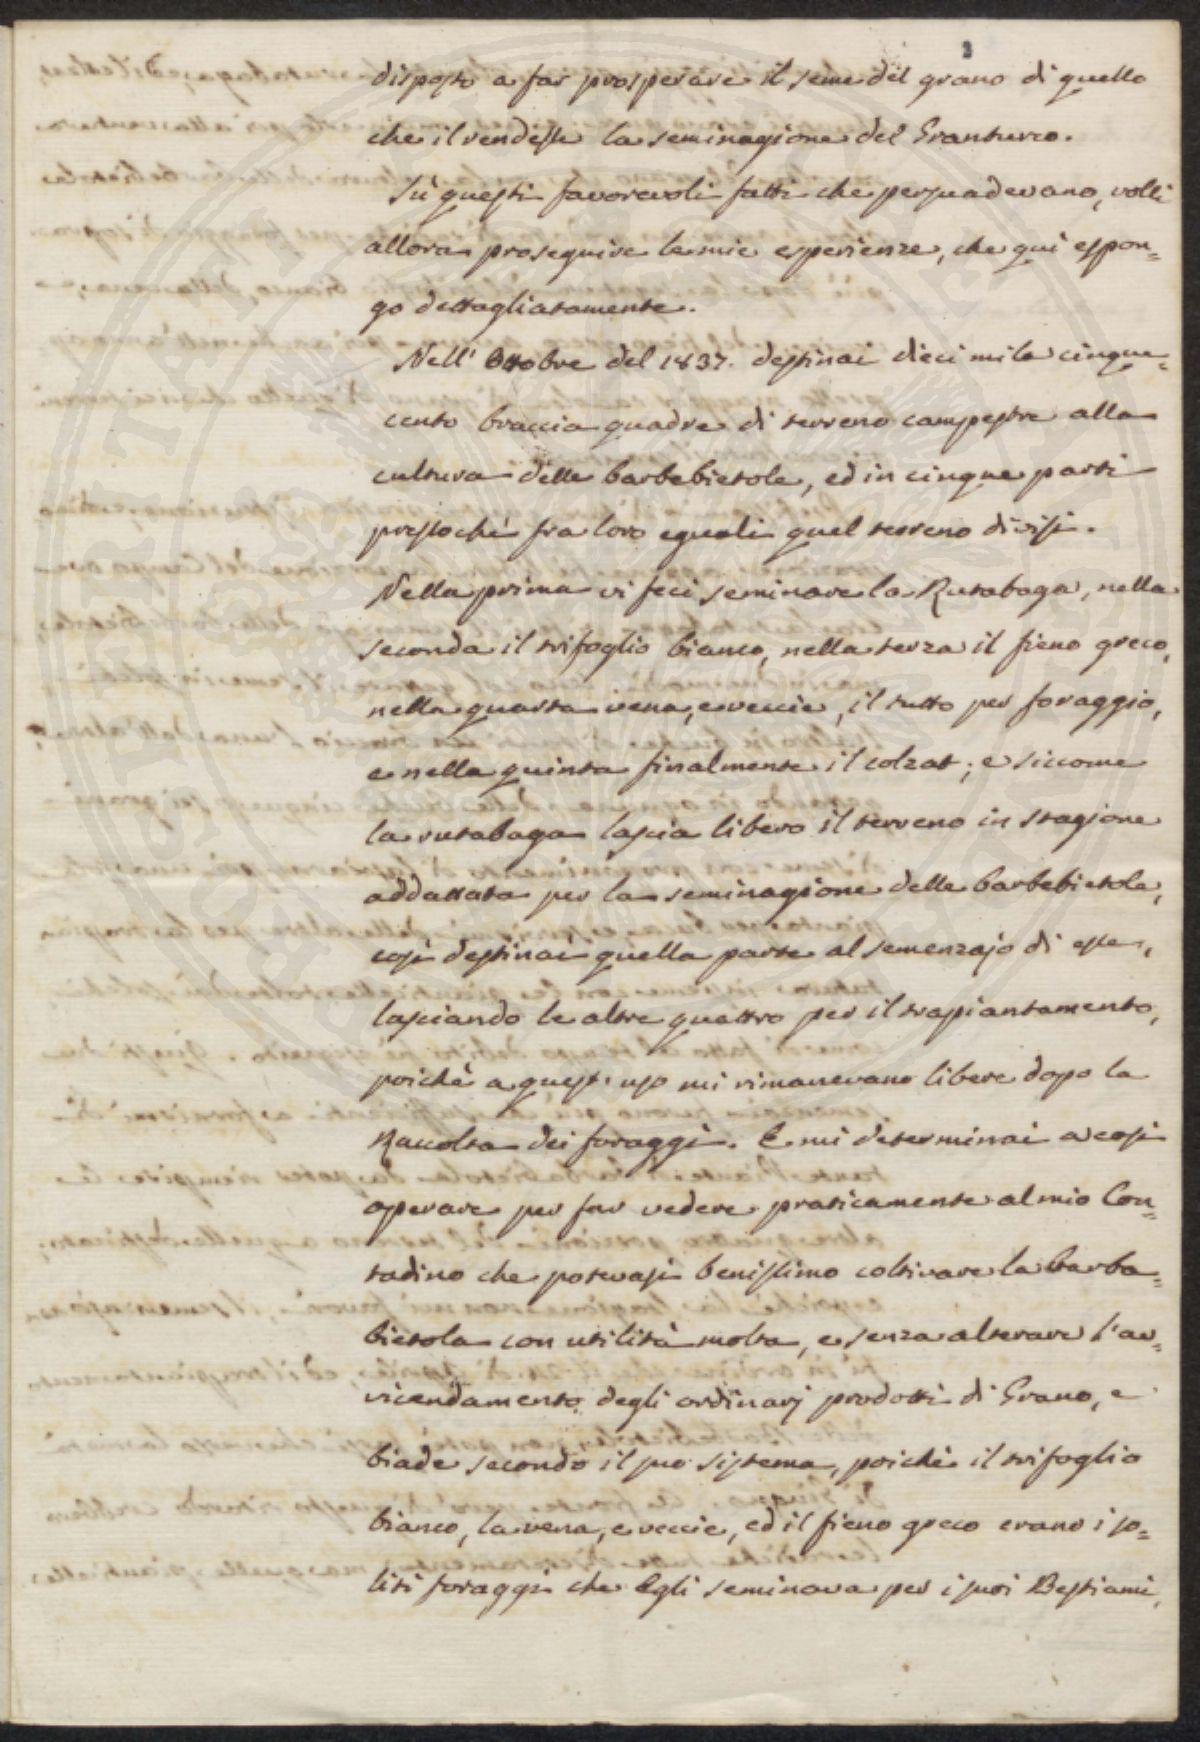 3
disposto a far prosperare il seme del grano di quello
che il rendesse la seminagione del Granturco.
Sù questi favorevoli fatti che persuadevano, volli
allora proseguire le mie esperienze, che qui espon=
go dettagliatamente.
Nell' Ottobre del 1837. destinai dieci mila cinque=
cento braccia quadre di terreno campestre alla
cultura delle barbebietole, ed in cinque parti
pressochè fra loro eguali quel terreno divisi.
Nella prima vi feci seminare la Rutabaga, nella
seconda il trifoglio bianco, nella terza il fieno greco,
nella quarta vena, e veccie, il tutto per foraggio,
e nella quinta finalmente il colzat; e siccome
la rutabaga lascia libero il terreno in stagione
addattata per la seminagione delle barbebietole,
così destinai quella parte al semenzajo di esse,
lasciando le altre quattro per il trapiantamento,
poichè a quest' uso mi rimanevano libere dopo la
Raccolta dei foraggi. E mi determinai a così
operare per far vedere praticamente al mio Con=
tadino che potevasi benissimo coltivare la barba=
bietola con utilità molta, e senza alterare l'av=
vicendamento degli ordinarj prodotti di Grano, e
biade secondo il suo sistema, poichè il trifoglio
bianco, la vena, e veccie, ed il fieno greco erano i so=
liti foraggi che Egli seminava per i suoi Bestiami,